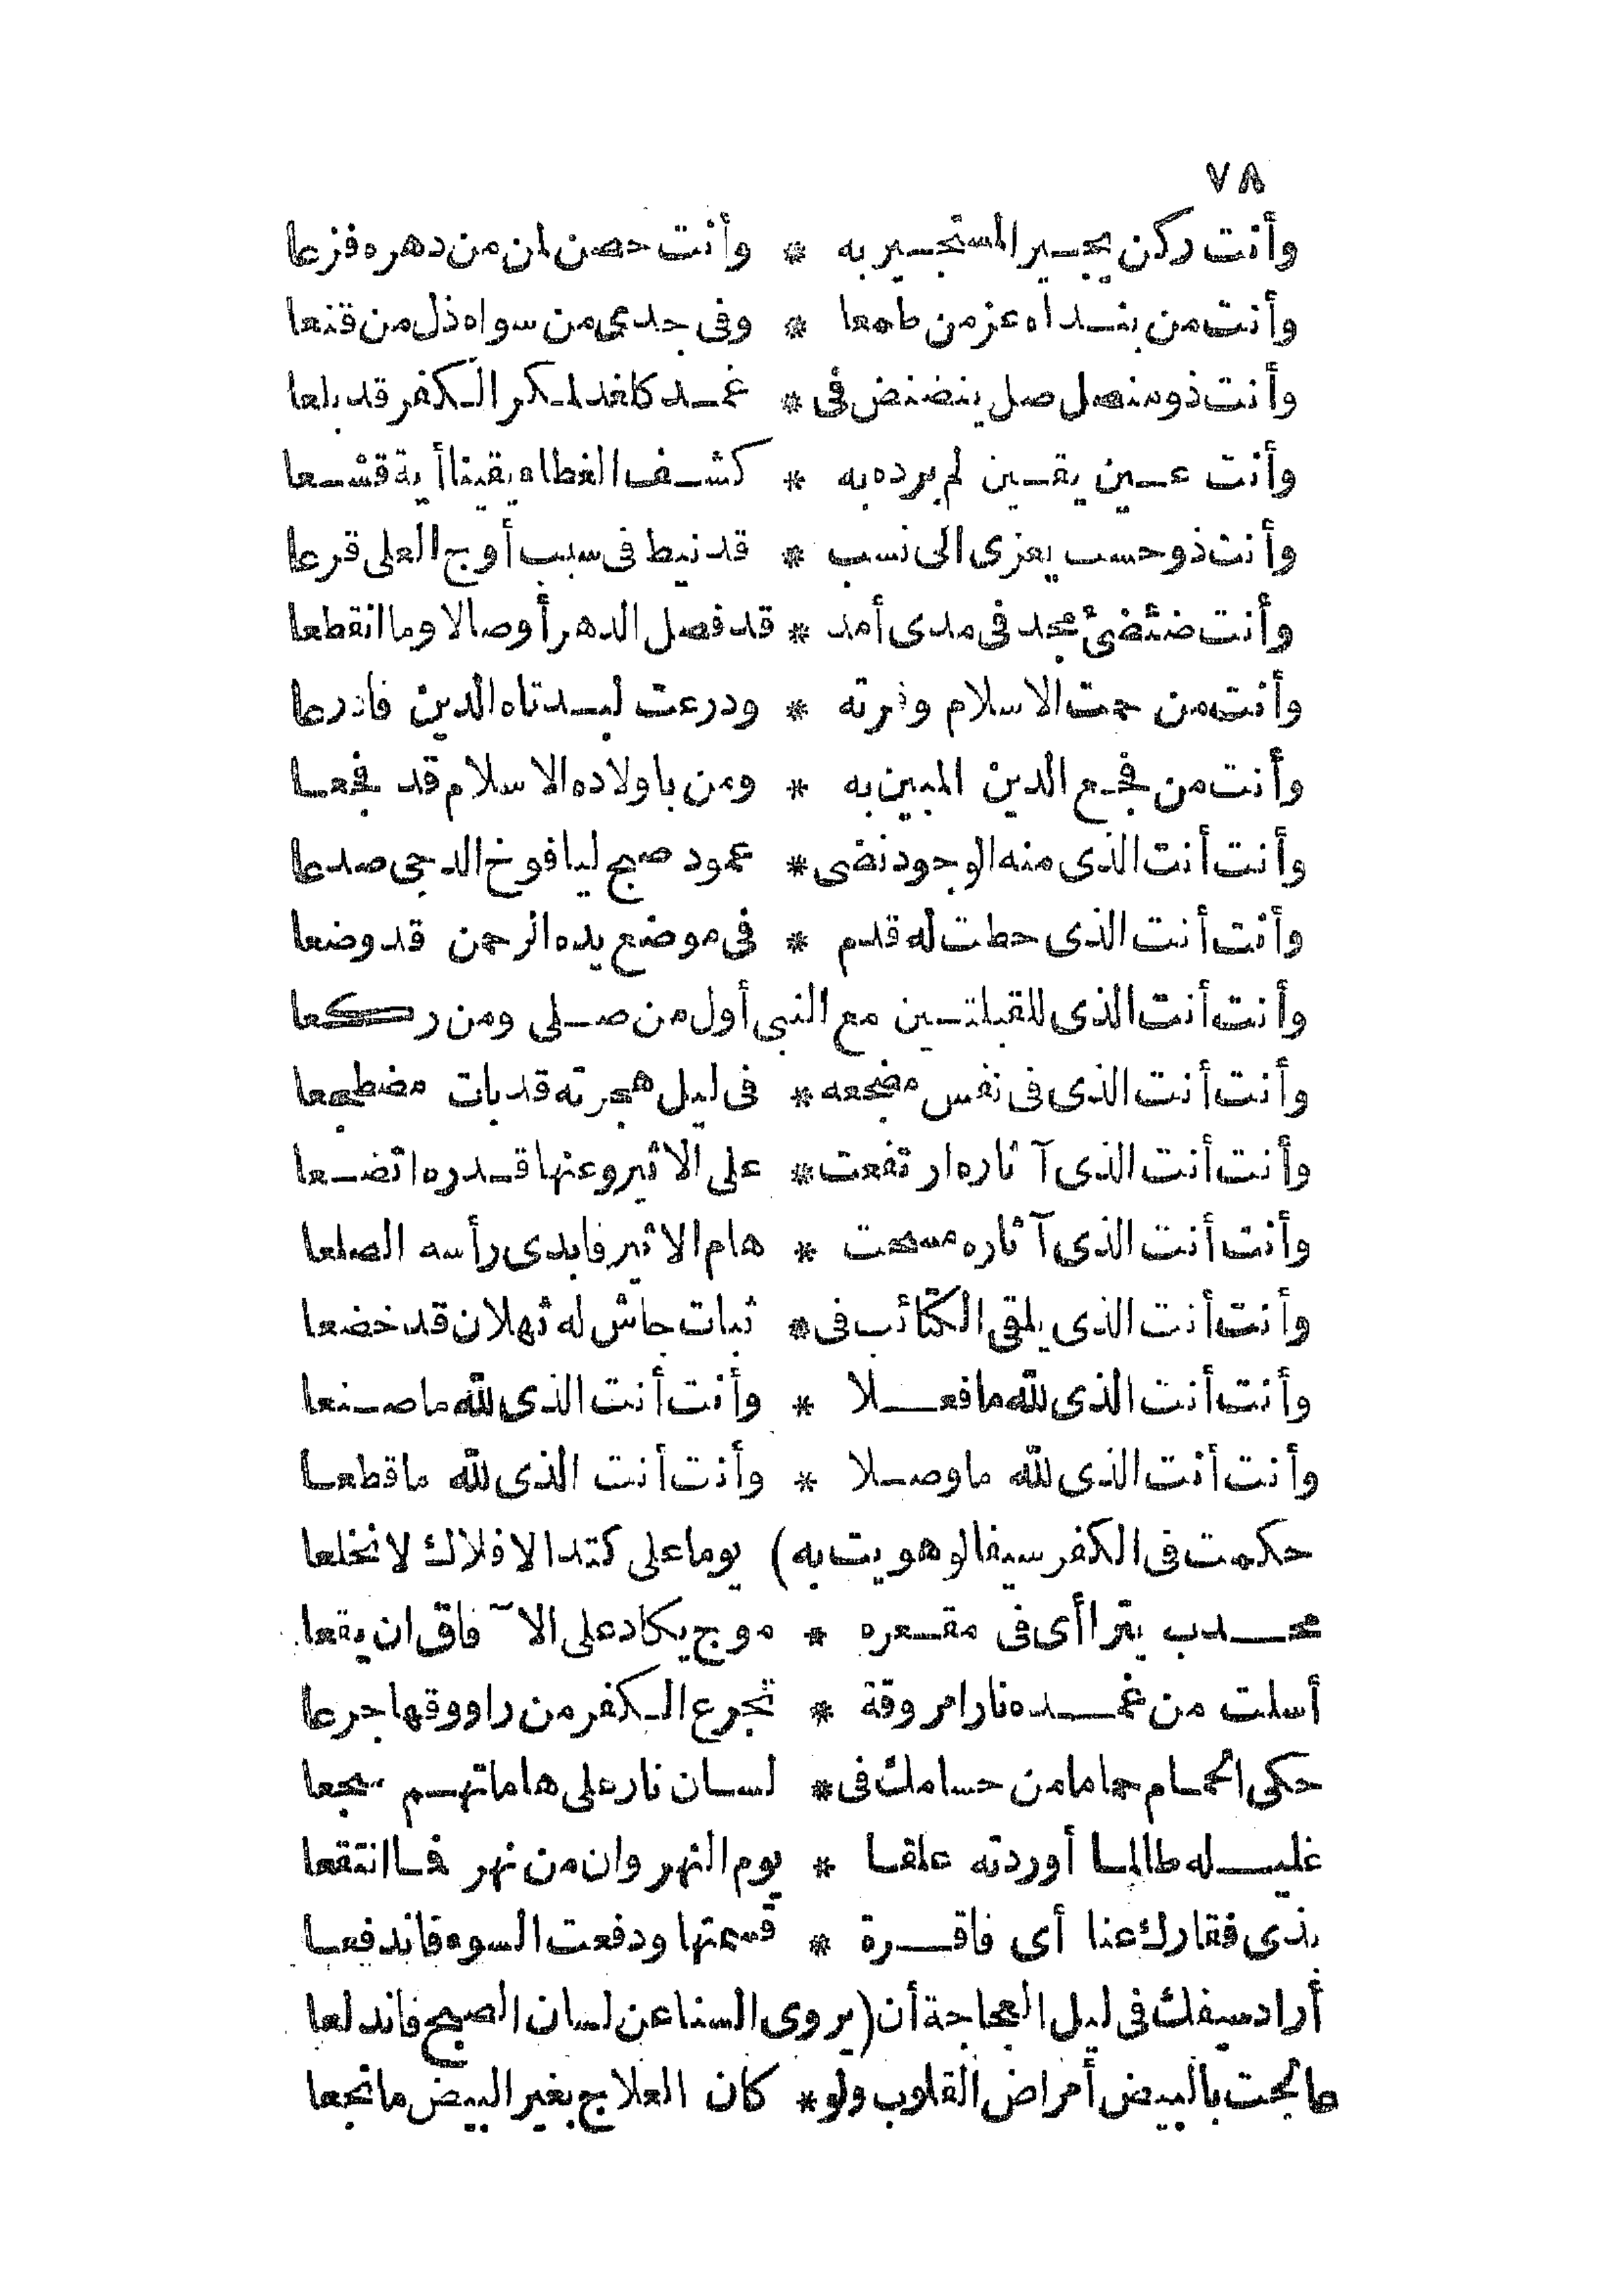 ٧٨
وأنت ركن يجير المستجير به * وأنت حصن لمن من دهره فزعا
وأنت من بنداه عز من طمعا * وفى جدى من سواه ذل من قنعا
وأنت ذو منصل صل ينضنض فى * غمد كاغد لمكر الكفر قد بلعا
وأنت عين يقين لم يرده به * كشف الغطاء يقينا أية قشعا
وأنت ذو حسب يعزى الى نسب * قد نيط فى سبب أوج العلى قرعا
وأنت ضئضئ مجد فى مدى أمد * قد فصل الدهر أوصالا وما انقطعا
وأنت من حمت الاسلام وفرته * ودرعت لبدتاه الدين فادرعا
وأنت من فجع الدين المبين به * ومن باولاده الاسلام قد فجعا
وأنت أنت الذى منه الوجود نضى * عمود صبح ليافوخ الدجى صدعا
وأنت أنت الذى حطت له قدم * فى موضع يده الرحمن قد وضعا
وأنت أنت الذى للقبلتين مع النبى أول من صلى ومن ركعا
وأنت أنت الذى فى نفس مضجعه * فى ليل هجرته قد بات مضطجعا
وأنت أنت الذى آثاره ارتفعت * على الاثير وعنها قدره اتضعا
وأنت أنت الذى آثاره مسحت * هام الاثير فابدى رأسه الصلعا
وأنت أنت الذى يلقى الكتائب فى * ثبات جاش له ثهلان قد خضعا
وأنت أنت الذى لله ما فعلا * وأنت أنت الذى لله ما صنعا
وأنت أنت الذى لله ما وصلا * وأنت أنت الذى لله ما قطعا
حكمت فى الكفر سيفا لو هويت به) يوما على كتد الافلاك لانخلعا
محدب يتراأى فى مقعره * موج يكاد على الآفاق ان يقعا
أسلت من غمده نارا مروقة * تجرع الكفر من راووقها جرعا
حكى الحمام حماما من حسامك فى * لسان نار على هاماتهم سجعا
غليله طالما أوردته علقا * يوم النهر وان من نهر فما انتقعا
بذى فقارك عنا أى فاقرة * قصمتها ودفعت السوء فاندفعا
أراد سيفك فى ليل العجاجة أن (يروى السنا عن لسان الصبح فاندلعا
عالجت بالبيض أمراض القلوب ولو * كان العلاج بغير البيض ما نجعا